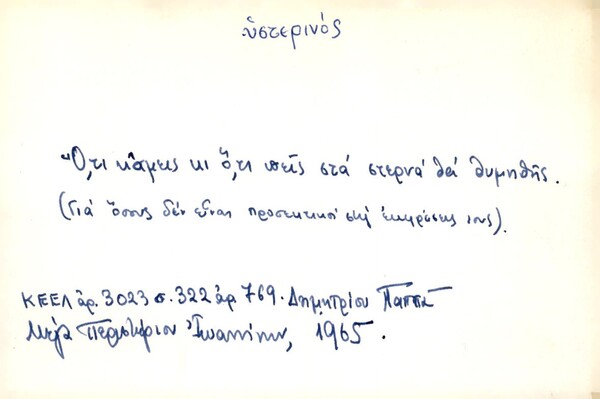 ὑστερινός
Ὅ,τι κάμεις κι ὅ,τι πεῖς στά στερνά θά θυμηθῆς.
(Γιά ὅσους δέν εἶναι προσεκτικοί στίς ἐκφράσεις τους).
ΚΕΕΛ ἀρ. 3023 σ. 322 ἀρ 769. Δημητρίου Παππᾶ
Μεγα Περιστέριον Ἰωαννίνων, 1965.